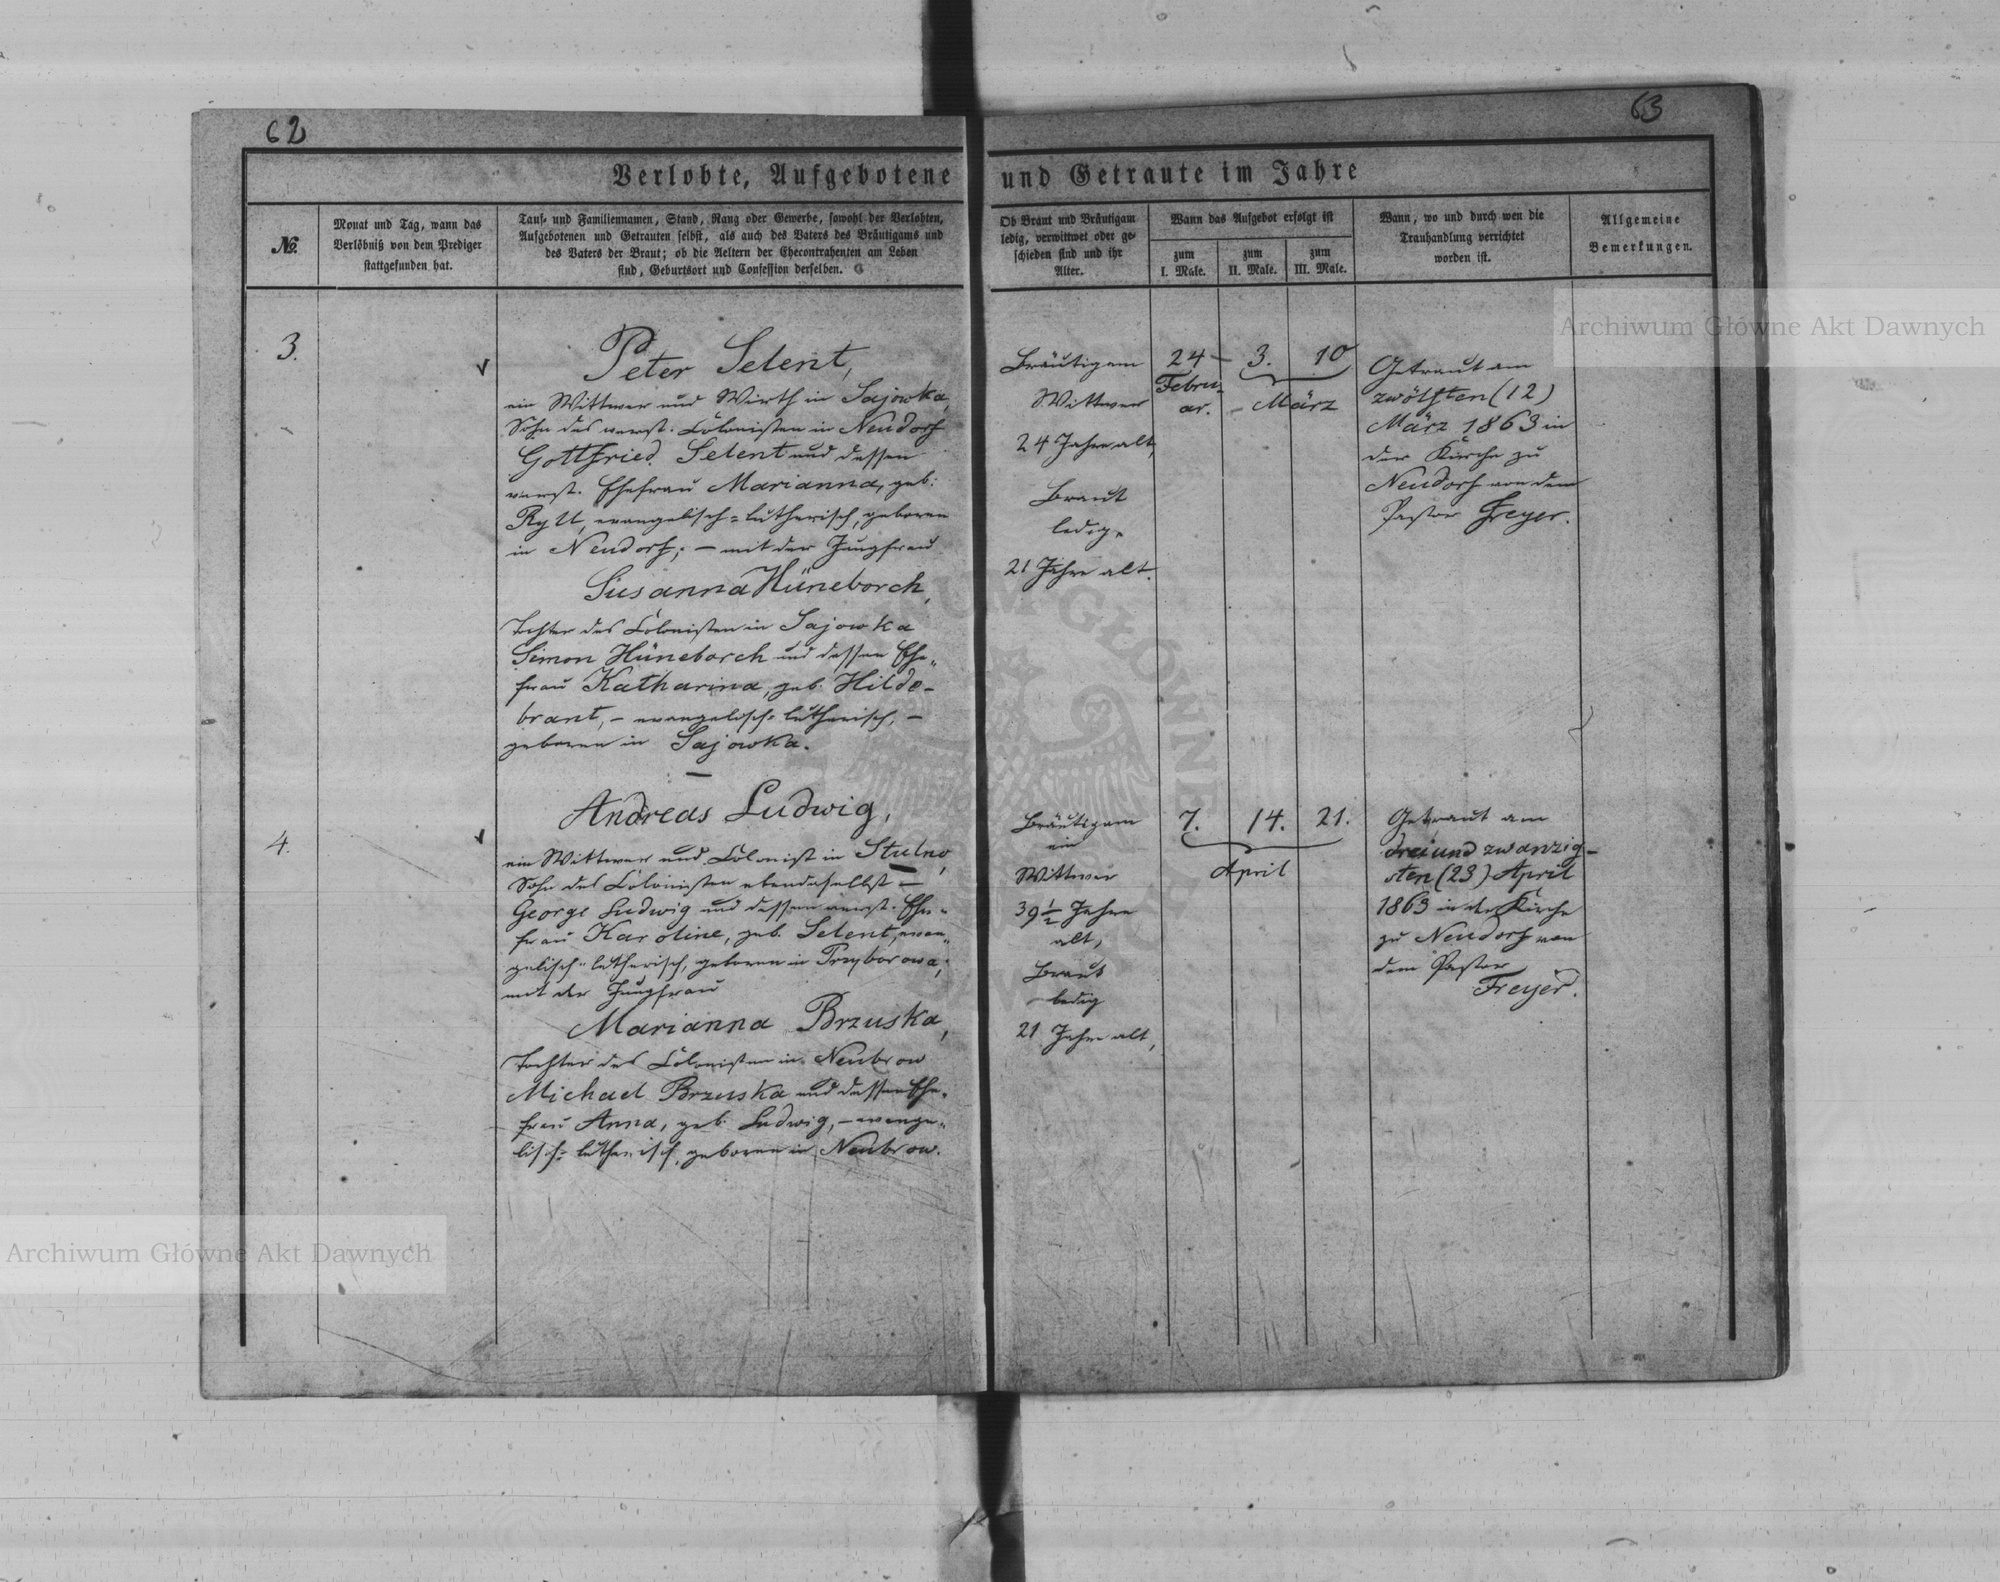 62
63
Verlobte, Aufgebotene und Getraute im Jahre
№.
Monat und Tag, wann das
Verlöbniß von dem Prediger
stattgefunden hat.
Tauf- und Familiennamen, Stand, Rang oder Gewerbe, sowohl der Verlobten,
Aufgebotenen und Getrauten selbst, als auch des Vaters des Bräutigams und
des Vaters der Braut; ob die Aeltern der Ehecontrahenten am Leben
sind, Geburtsort und Confession derselben.
Ob Braut und Bräutigam
ledig, verwittwet oder ge-
schieden sind und ihr
Alter.
Wann das Aufgebot erfolgt ist
zum
I. Male.
zum
II. Male.
zum
III. Male.
Wann, wo und durch wen die
Trauhandlung verrichtet
worden ist.
Allgemeine
Bemerkungen.
3.
Peter Selent,
ein Wittwer und Wirth in Sajowka,
Sohn des verst. Colonisten in Neudorf
Gottfried Selent und dessen
verst. Ehefrau Marianna, geb:
Rytt, evangelisch=lutherisch, geboren
in Neudorf; – mit der Jungfrau
Susanna Hüneborch,
Tochter des Colonisten in Sajowka
Simon Hüneborch und dessen Ehe„
frau Katharina, geb. Hilde-
brant, – evangelisch=lutherisch, –
geboren in Sajowka.
Bräutigam
Wittwer
24 Jahre alt,
Braut
ledig,
21 Jahre alt.
24 –
Febru-
ar.
3. 10
März
Getraut am
zwölften (12)
März 1863 in
der Kirche zu
Neudorf von dem
Pastor Freyer.
4.
Andreas Ludwig,
ein Wittwer und Colonist in Stulno,
Sohn des Colonisten ebendaselbst –
George Ludwig und dessen verst. Ehe-
frau Karoline, geb. Selent, evan„
gelisch=lutherisch, geboren in Przyborowa;
mit der Jungfrau
Marianna Brzuska,
Tochter des Colonisten in Neubrow
Michael Brzuska und dessen Ehe-
frau Anna, geb. Ludwig, – evange„
lisch=lutherisch, geboren in Neubrow.
Bräutigam
ein
Wittwer
39 1/2 Jahre
alt,
Braut
ledig
21 Jahre alt,
7. 14. 21.
April
Getraut am
dreiundzwanzig-
sten (23) April
1863 in der Kirche
zu Neudorf von
dem Pastor
Freyer.
Archiwum Główne Akt Dawnych
Archiwum Główne Akt Dawnych